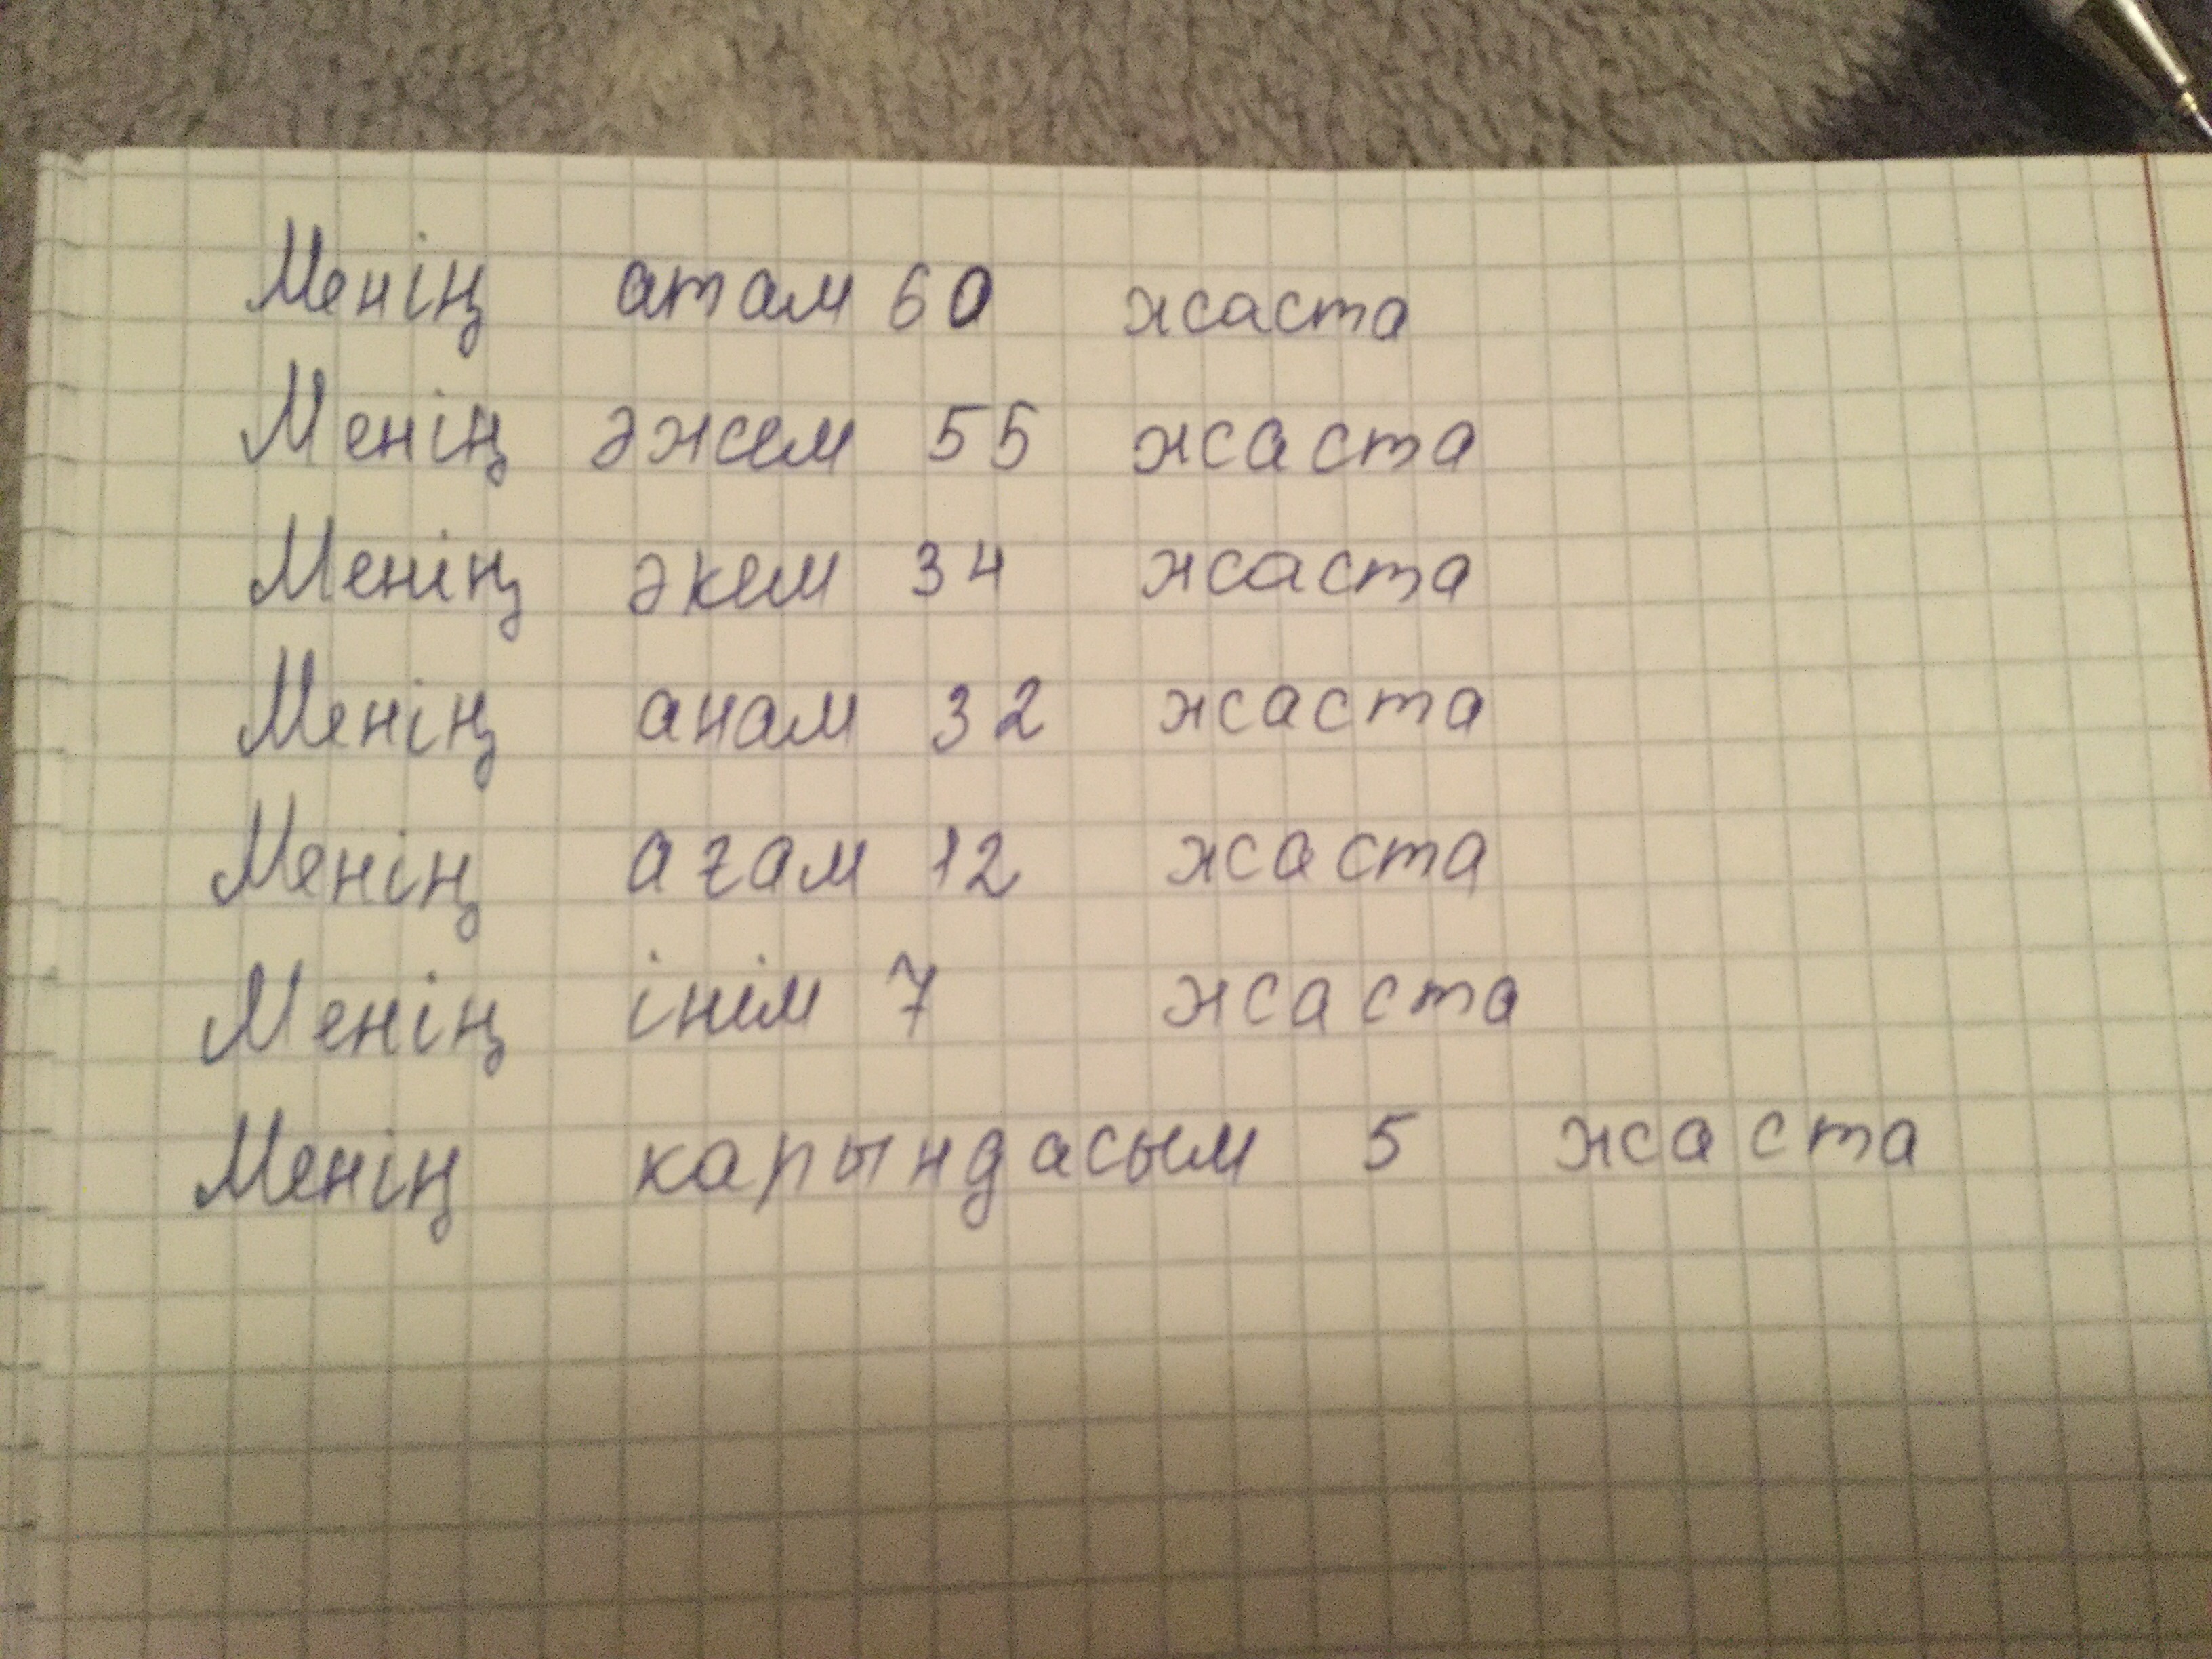 Менің атам 60 жаста
Менің әжем 55 жаста
Менің әкем 34 жаста
Менің анам 32 жаста
Менің ағам 12 жаста
Менің інім 7 жаста
Менің карындасым 5 жаста